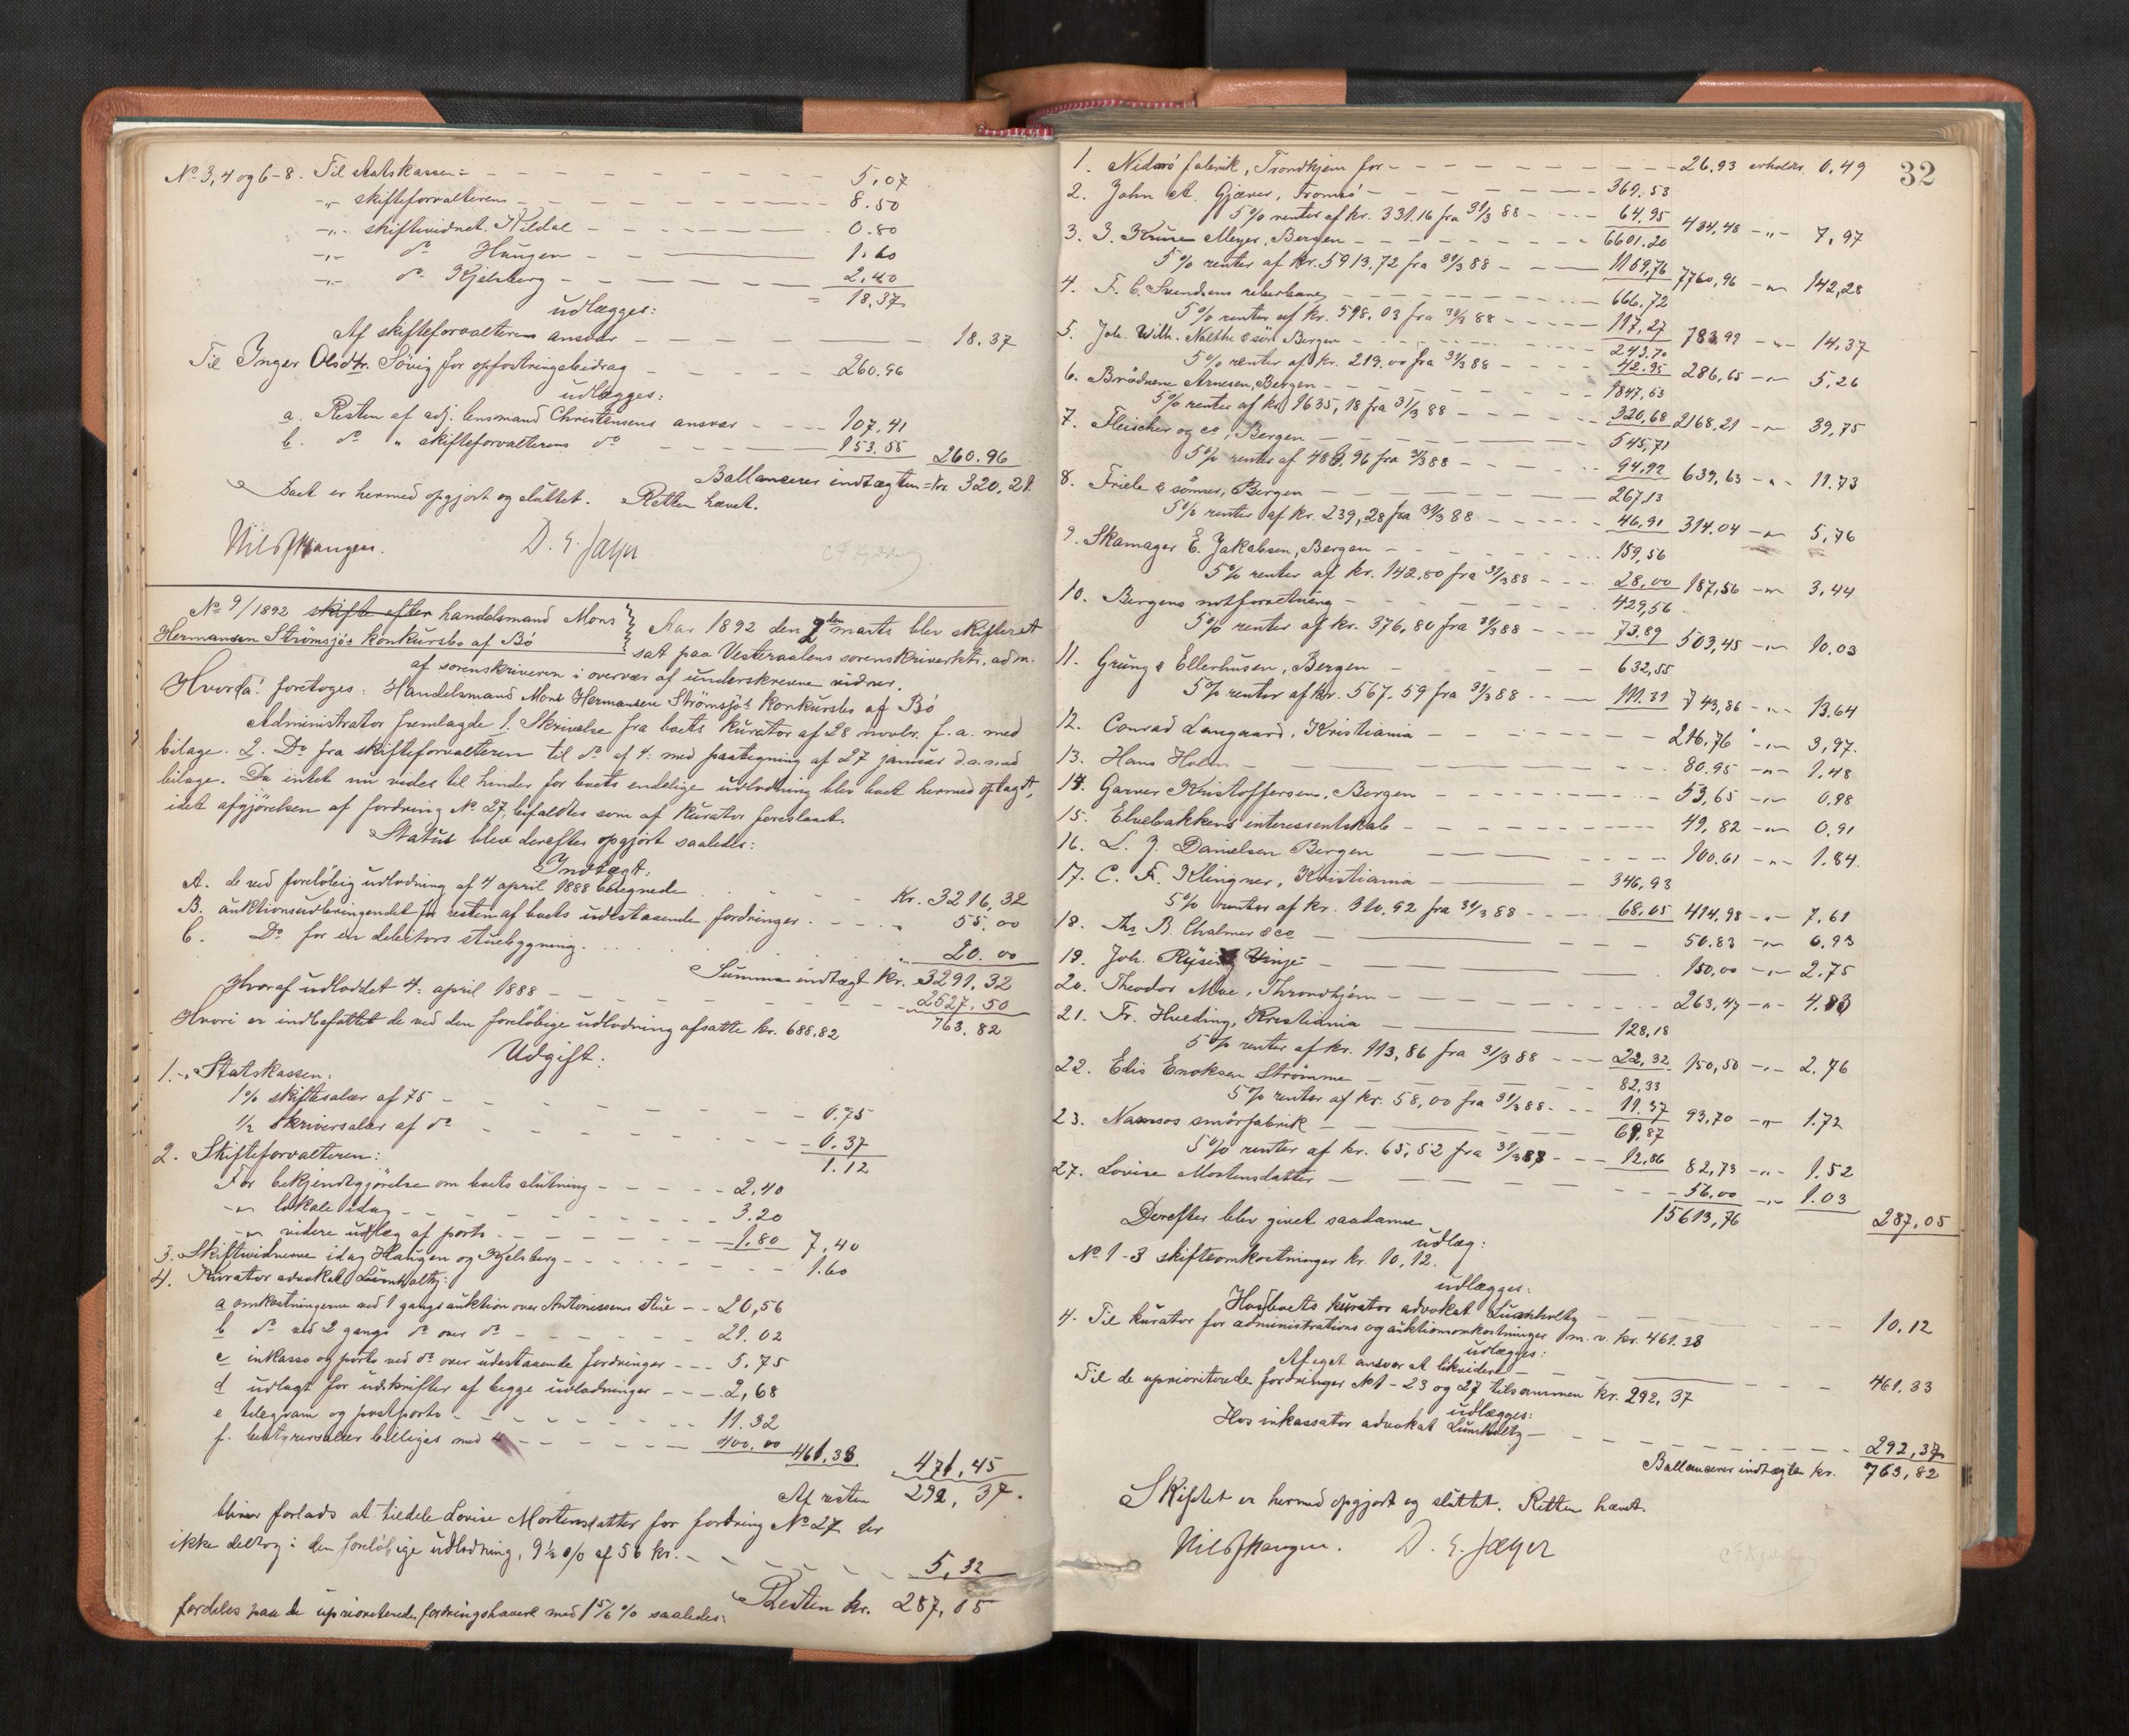 No 3, 4 og 6-8. Til Statskassen = 5,07
-„- skifteforvalteren 8.50
-„- skiftevidnet Kildal 0.80
-„- do Haugen 1.60
-„- do Kjelsberg 2.40
= 18,37
udlægges:
Af skifteforvalterens ansvar 18.37
Til Inger Olsdtr. Sövig for opfostringsbidrag 260.96
udlægges:
a. Resten af adj. lensmand Christensens ansvar 107,41
b. do „ skifteforvalterens do 153.55 260.96
Ballancerer indtægten = kr. 320,29.
Boet er hermed opgjort og sluttet. Retten hævet.
Nils Haugen. D. E. Jæger C F Kjelsberg
No 9/1892 skifte efter handelsmand Mons
Hermansen Strömsjös konkursbo af Bö
Aar 1892 den 2den marts blev skifteret
sat paa Vesteraalens sorenskriverkt., adm.
af sorenskriveren i overvær af underskrevne vidner.
Hvorda! foretoges: Handelsmand Mons Hermansen Strömsjös konkursbo af Bö
Administrator fremlagde 1. Skrivelse fra boets kurator af 28 novbr. f. a. med
bilage. 2. Do fra skifteforvalteren til do af 4. med paategning af 27 januar d.a. med
bilage. Da intet nu vides til hinder for boets endelige udlodning blev boet hermed optagt,
idet afgjörelsen af fordring No 27, bifaldtes som af kurator foreslaaet.
Status blev derefter opgjort saaledes:
Indtægt:
A. de ved foreløbig udlodning af 4 april 1888 beregnede Kr. 3216,32
B. auktionsudbringendet for resten af boets udestaaende fordringer 55.00
C. Do for en debitors stuebygning „ 20.00
Summa indtægt kr. 3291.32
Hvoraf udloddet 4. april 1888 2527.50
763.82
Hvori er indbefattet de ved den foreløbige udlodning afsatte kr. 688,82
Udgift.
1. Statskassen:
1% skiftesalær af 75 0.75
1/2 skriversalær af do 0.37
1.12
2. Skifteforvalteren:
For bekjendtgjørelse om boets slutning 2,40
-„- lokale idag 3.20
-„- videre udlæg af porto 1.80 7,40
3. Skiftevidnerne idag Haugen og Kjelsberg 1.60
4. Kurator advokat Lumholtz:
a omkostningerne ved 1 gangs auktion over Antonissens stue 20,56
b do ved 2 gangs do over do 21.02
c inkasso og porto ved do over udestaaende fordringer 5.75
d udlagt for udskrifter af begge udlodninger 2,68
e telegram og postporto 11.32
f. bestyrersalær billiges med 400.00 461.33 471,45
Af resten 292,37.
bliver forlods at tildele Lovise Mortensdatter for fordring No 27 der
ikke deltog i den foreløbige udlodning, 9½ o/o af 56 kr. 5,32
Resten kr. 287,05
fordeles paa de uprioriterede fordringshavere med 1 5/6 % saaledes:
32
1. Nidarö fabrik, Trondhjem for 26.93 erholdes 0,49
2. John A. Gjæver, Tromsö 369.53
5% renter af kr. 331.16 fra 31/3 88 64.95 434,48 -„- 7,97
3. J. Kruse Meyer, Bergen 6601.20
5% renter af kr. 5913,72 fra 31/3 88 1159,76 7760,96 -„- 142,28
4. F. C. Svendsens reberbane 666.72
5% renter af kr. 598,03 fra 31/3 88 117,27 783.99 -„- 14,37
5. Joh. Wilh. Nalthe & sön Bergen 243.70
5% renter af kr. 219.00 fra 31/3 88 42.95 286,65 -„- 5,26
6. Brödrene Arnesen, Bergen 1847,53
5% renter af kr 1635,18 fra 31/3 88 320,68 2168,21 -„- 39,75
7. Fleischer og co, Bergen 545,71
5% renter af 483,96 fra 31/3 88 94.92 639,63 -„- 11.73
8. Friele & sönner, Bergen 267,13
5% renter af kr. 239,28 fra 31/3 88 46,91 314.04 -„- 5,76
9. Skomager E. Jakobsen, Bergen 159,56
5% renter af kr. 142,80 fra 31/3 88 28,00 187,56 -„- 3,44
10. Bergens notforretning 429,56
5% renter af kr. 376,80 fra 31/3 88 73.89 503,45 -„- 10.03
11. Grüng & Ellerhusen, Bergen 632,55
5% renter af kr. 567.59 fra 31/3 88 111.31 743,86 -„- 13.64
12. Conrad Langaard, Kristiania 216.76 -„- 3,97.
13. Hans Holm 80.95 -„- 1,48
14. Garver Kristoffersen, Bergen 53,65 -„- 0,98
15. Elvebakkens interessentskab 49,82 -„- 0,91
16. L. J. Danielsen Bergen 100.61 -„- 1.84.
17. C. F. Klingner, Kristiania 346,93
5% renter af kr. 310.92 fra 31/3 88 68,05 414.98 -„- 7,61
18. Ths B. Chalmer & co 50.83 -„- 0,93
19. Joh. Vinje 150,00 -„- 2.75
20. Theodor Moe, Throndhjem 263,47 -„- 4.83
21. Fr. Hveding, Kristiania 128,18
5% renter af kr. 113,86 fra 31/3 88 22,32 150,50 -„- 2.76
22. Edis Enoksen Strömme 82,33
5% renter af kr. 58,00 fra 31/3 88 11.37 93,70 -„- 1.72
23. Namsos smörfabrik 69,87
5% renter af kr. 65,52 fra 31/3 88 12.86 82,73 -„- 1.52
27. Lovise Mortensdatter 56.00 -„- 1.03
15613,76 287,05
Derefter blev givet saadanne
udlæg:
No 1-3 skifteomkostninger kr. 10,12.
udlægges:
Hos boets kurator advokat Lumholtz 10,12
4. Til kurator for administrations og auktionsomkostninger m.v. kr. 461.33
udlægges:
Af eget ansvar at likvidere 461.33
Til de uprioriterede fordringer No 1-23 og 27 tilsammen kr. 292,37
udlægges:
Hos inkassator advokat Lumholtz 292,37
Ballancerer indtægten kr. 763,82
Skiftet er hermed opgjort og sluttet. Retten hævet.
Nils Haugen. D. E. Jæger C F Kjelsberg